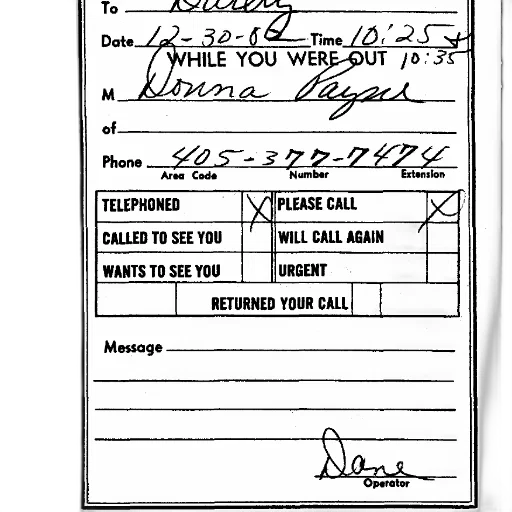 To
Date 12-30-82 Time 10:25 &
WHILE YOU WERE OUT 10:35
M Donna Payne
of
Phone 405-377-7474
Area Code Number Extension
TELEPHONED X PLEASE CALL X
CALLED TO SEE YOU WILL CALL AGAIN
WANTS TO SEE YOU URGENT
RETURNED YOUR CALL
Message
Dane
Operator